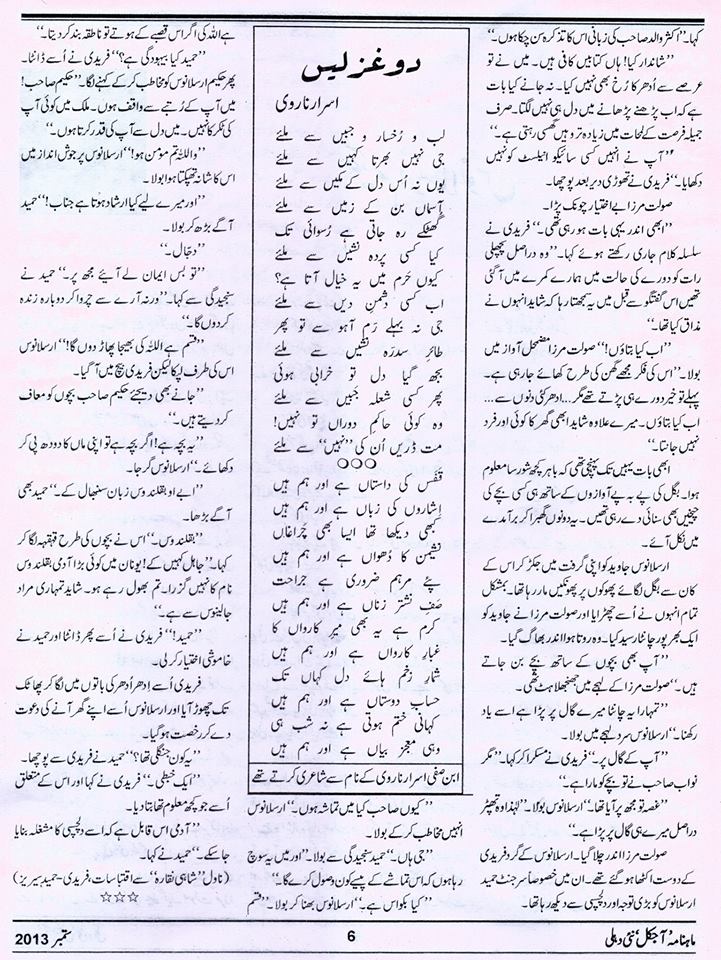 کہا۔ ”اکثر والد صاحب کی زبانی اس کا تذکرہ سن چکا ہوں۔“
”شاندار کیا! ہاں کتابیں کافی ہیں۔ میں نے تو
عرصے سے اُدھر کا رُخ بھی نہیں کیا۔ نہ جانے کیا بات
ہے کہ اب پڑھنے پڑھانے میں دل ہی نہیں لگتا۔ صرف
جمیلہ فرصت کے لمحات میں زیادہ تر وہیں گھسی رہتی ہے۔“
”آپ نے انہیں کسی سائیکو انیلسٹ کو نہیں
دکھایا۔“ فریدی نے تھوڑی دیر بعد پوچھا۔
صولت مرزا بے اختیار چونک پڑا۔
”ابھی اندر یہی بات ہو رہی تھی۔“ فریدی نے
سلسلہ کلام جاری رکھتے ہوئے کہا۔ ”وہ دراصل پچھلی
رات کو دورے کی حالت میں ہمارے کمرے میں آ گئی
تھیں اس گفتگو سے قبل میں یہ سمجھتا رہا کہ شاید انہوں نے
مذاق کیا تھا۔“
”اب کیا بتاؤں!“ صولت مرزا مضمحل آواز میں
بولا۔ ”اس کی فکر مجھے گھن کی طرح کھائے جا رہی ہے۔
پہلے تو خیر دورے ہی پڑتے تھے مگر… ادھر کئی دنوں سے…
اب کیا بتاؤں۔ میرے علاوہ شاید ابھی گھر کا کوئی اور فرد
نہیں جانتا۔“
ابھی بات یہیں تک پہنچی تھی کہ باہر کچھ شور سا معلوم
ہوا۔ بگل کی پے بہ پے آوازوں کے ساتھ ہی کسی بچے کی
چیخیں بھی سنائی دے رہی تھیں۔ یہ دونوں گھبرا کر برآمدے
میں نکل آئے۔
ارسلانوس جاوید کو اپنی گرفت میں جکڑ کر اس کے
کان سے بگل لگائے پھونکوں پر پھونکیں مار رہا تھا۔ بمشکل
تمام انہوں نے اُسے چھڑایا اور صولت مرزا نے جاوید کو
ایک بھرپور چانٹا رسید کیا۔ وہ روتا ہوا اندر بھاگ گیا۔
”آپ بھی بچوں کے ساتھ بچے بن جاتے
ہیں۔“ صولت مرزا کے لہجے میں جھنجھلاہٹ تھی۔
”تمہارا یہ چانٹا میرے گال پر پڑا ہے اسے یاد
رکھنا۔“ ارسلانوس سرد لہجے میں بولا۔
”آپ کے گال پر۔“ فریدی نے مسکرا کر کہا۔ ”مگر
نواب صاحب نے تو بچے کو مارا ہے۔“
”غصہ تو مجھ پر آیا تھا۔“ ارسلانوس بولا۔ ”لہٰذا وہ تھپڑ
دراصل میرے ہی گال پر پڑا ہے۔“
صولت مرزا اندر چلا گیا۔ ارسلانوس کے گرد فریدی
کے دوست اکٹھا ہو گئے تھے۔ ان میں خصوصاً سرجنٹ حمید
ارسلانوس کو بڑی توجہ اور دلچسپی سے دیکھ رہا تھا۔
دو غزلیں
اسرار ناروی
لب و رُخسار و جبیں سے ملئے
جی نہیں بھرتا کہیں سے ملئے
یوں نہ اُس دل کے مکیں سے ملئے
آسماں بن کے زمیں سے ملئے
گھٹکے رہ جاتی ہے رُسوائی تک
کیا کسی پردہ نشیں سے ملئے
کیوں حَرم میں یہ خیال آتا ہے؟
اب کسی دشمنِ دیں سے ملئے
جی نہ بہلے رَمِ آہو سے تو پھر
طائرِ سدرَہ نشیں سے ملئے
بجھ گیا دل تو خرابی ہوئی
پھر کسی شعلہ جَبیں سے ملئے
وہ کوئی حاکمِ دوراں تو نہیں!
مت ڈریں اُن کی ”نہیں“ سے ملئے
○○○
قفَس کی داستاں ہے اور ہم ہیں
اِشاروں کی زباں ہے اور ہم ہیں
کبھی دیکھا تھا ایسا بھی چَراغاں
نشیمن کا دُھواں ہے اور ہم ہیں
پئے مرہم ضروری ہے جراحت
صَفِ نشتر زناں ہے اور ہم ہیں
کرم ہے یہ بھی میرِ کارواں کا
غبارِ کارواں ہے اور ہم ہیں
شمارِ زخم ہائے دل کہاں تک
حسابِ دوستاں ہے اور ہم ہیں
کہانی ختم ہوتی ہے نہ شب ہی
وہی معجز بیاں ہے اور ہم ہیں
ابن صفی اسرار ناروی کے نام سے شاعری کرتے تھے
”کیوں صاحب کیا میں تماشہ ہوں۔“ ارسلانوس
انہیں مخاطب کر کے بولا۔
”جی ہاں۔“ حمید سنجیدگی سے بولا۔ ”اور میں یہ سوچ
رہا ہوں کہ اس تماشے کے پیسے کون وصول کرے گا۔“
”کیا بکواس ہے۔“ ارسلانوس بھنا کر بولا۔ ”قسم
ہے اللہ کی اگر اس قصبے کے ہوتے تو ناطقہ بند کر دیتا۔“
”حمید کیا بیہودگی ہے؟“ فریدی نے اُسے ڈانٹا۔
پھر حکیم ارسلانوس کو مخاطب کر کے کہنے لگا۔ ”حکیم صاحب!
میں آپ کے رُتبے سے واقف ہوں۔ ملک میں کوئی آپ
کی ٹکر کا نہیں۔ میں دل سے آپ کی قدر کرتا ہوں۔“
”واللہ تم مومن ہو!“ ارسلانوس پر جوش انداز میں
اس کا شانہ تھپکتا ہوا بولا۔
”اور میرے لیے کیا ارشاد ہوتا ہے جناب!“ حمید
آگے بڑھ کر بولا۔
”دجّال۔“
”تو بس ایمان لے آیئے مجھ پر۔“ حمید نے
سنجیدگی سے کہا۔ ”ورنہ آرے سے چروا کر دوبارہ زندہ
کر دوں گا۔“
”قسم ہے اللہ کی بھیجا پھاڑ دوں گا!“ ارسلانوس
اس کی طرف لپکا لیکن فریدی بیچ میں آ گیا۔
”جانے بھی دیجئے حکیم صاحب بچوں کو معاف
کر دیتے ہیں۔“
”یہ بچہ ہے! اگر بچہ ہے تو اپنی ماں کا دودھ پی کر
دکھائے۔“ ارسلانوس گرجا۔
”ابے او بقلندوس زبان سنبھال کے۔“ حمید بھی
آگے بڑھا۔
”بقلندوس۔“ اس نے بچوں کی طرح قہقہہ لگا کر
کہا۔ ”جاہل کہیں کے! یونان میں کوئی بڑا آدمی بقلندوس
نام کا نہیں گزرا۔ تم بھول رہے ہو۔ شاید تمہاری مراد
جالینوس سے ہے۔“
”حمید!“ فریدی نے اُسے پھر ڈانٹا اور حمید نے
خاموشی اختیار کر لی۔
فریدی اُسے اِدھر اُدھر کی باتوں میں لگا کر پھاٹک
تک چھوڑ آیا اور ارسلانوس اُسے اپنے گھر آنے کی دعوت
دے کر رخصت ہو گیا۔
”یہ کون جنگلی تھا؟“ حمید نے فریدی سے پوچھا۔
”ایک خبطی۔“ فریدی نے کہا اور اس کے متعلق
اُسے جو کچھ معلوم تھا بتا دیا۔
”آدمی اس قابل ہے کہ اسے دلچسپی کا مشغلہ بنایا
جا سکے۔“ حمید نے کہا۔
(ناول ”شاہی نقارہ“ سے اقتباسات، فریدی-حمید سیریز)
☆☆☆
ماہنامہ ’آجکل‘ نئی دہلی
6
ستمبر 2013